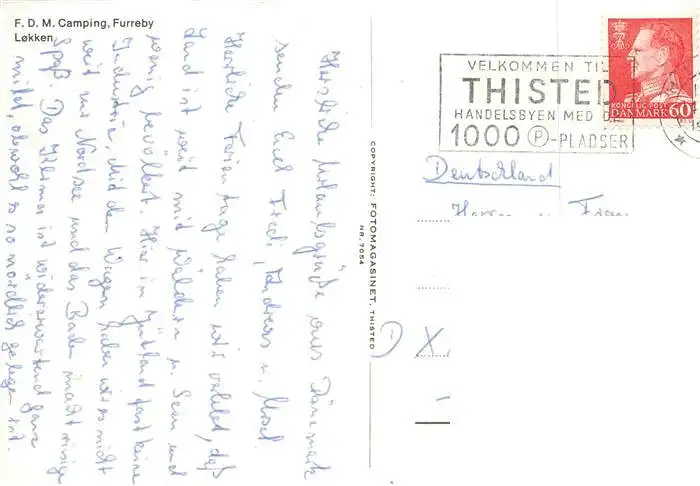 F. D. M. Camping, Furreby
Løkken
Herzliche Urlaubsgrüße aus Dänemark
senden Euch Fredi, Andreas u.
Herrliche Ferientage haben wir verlebt, daß
Land ist weit mit Wäldern u. Seen und
wenig bevölkert. Hier in Jütland fast keine
Industrie, mit dem Wagen haben wir es nicht
weit zur Nordsee und das Baden macht riesige
Spaß. Das Klima ist widererwartend ganz
mild, obwohl es so nördlich gelegen ist.
COPYRIGHT: FOTOMAGASINET, THISTED
NR. 7054
VELKOMMEN TIL
THISTED
HANDELSBYEN MED DE
1000 P-PLADSER
KONGELIG POST
DANMARK 60
Deutschland
Herrn u. Frau
D X